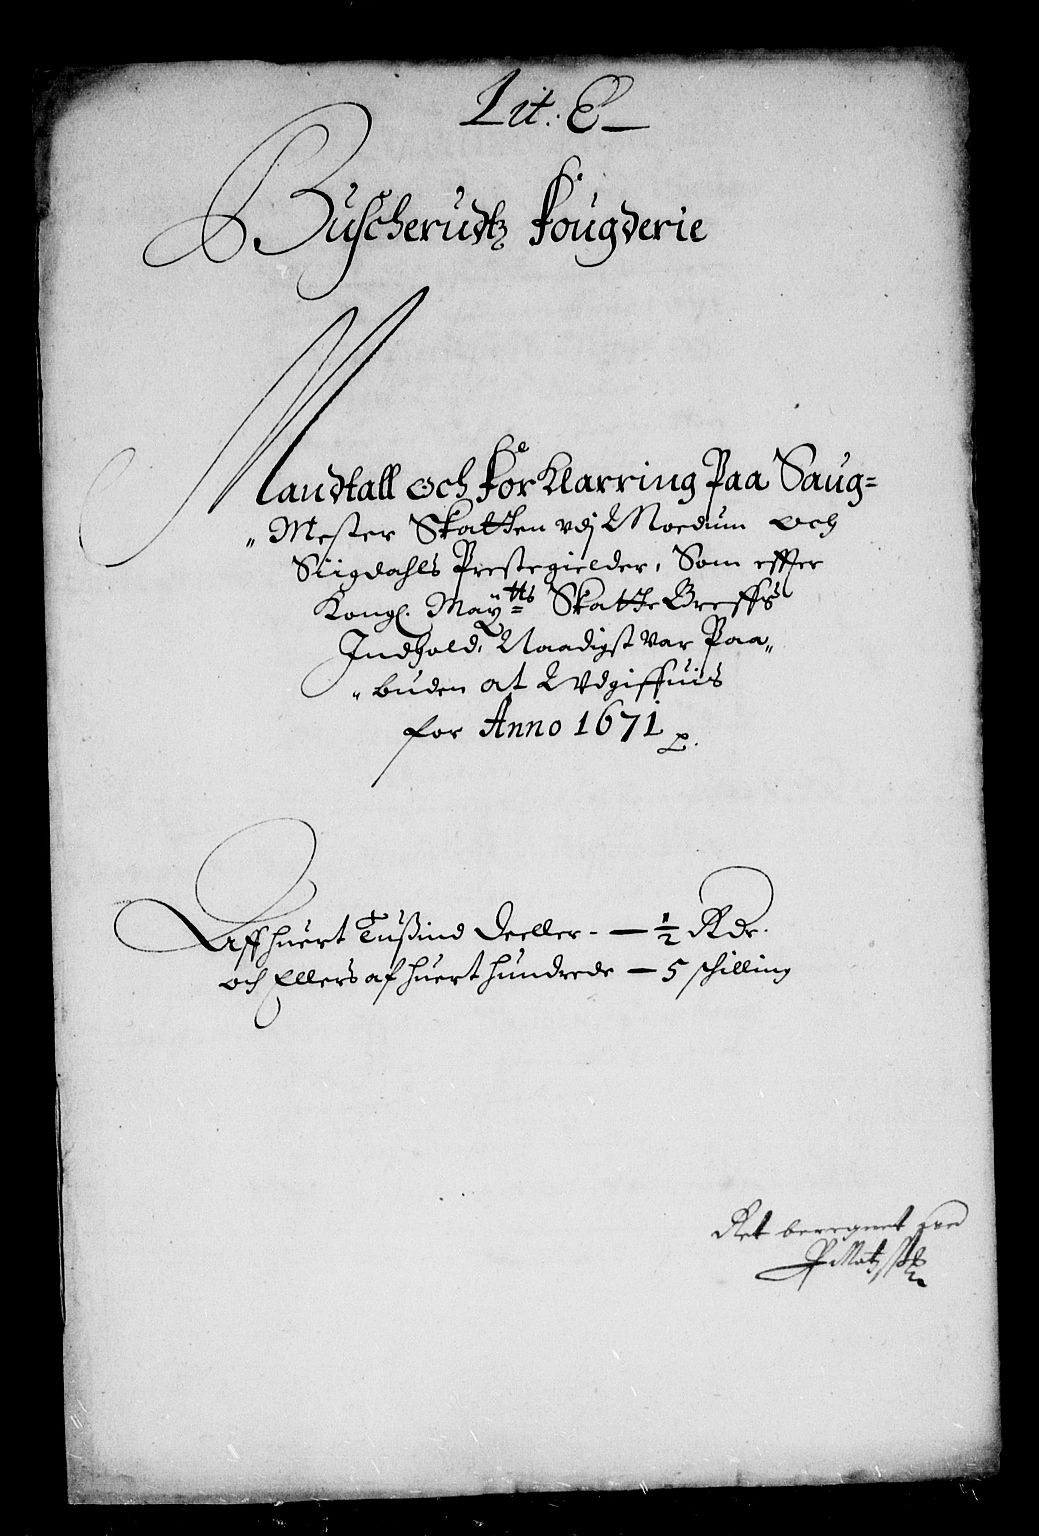 Lit. E
Buscherudtz Fougderie
Mandtall och Forklarring Paa Saug=
Mester Skatten vdj Moedum och
Siigdahls Prestegielder, Som effter
Kongl. Maÿtts Skatte Breffs
Indhold, Naadigst var Paa„
„buden at Vdgiffuis
for Anno 1671
Aff huert Tußind Deeller - — ½ Rdr.
och Ellers af huert hundrede — 5 schilling
Ret beregnet